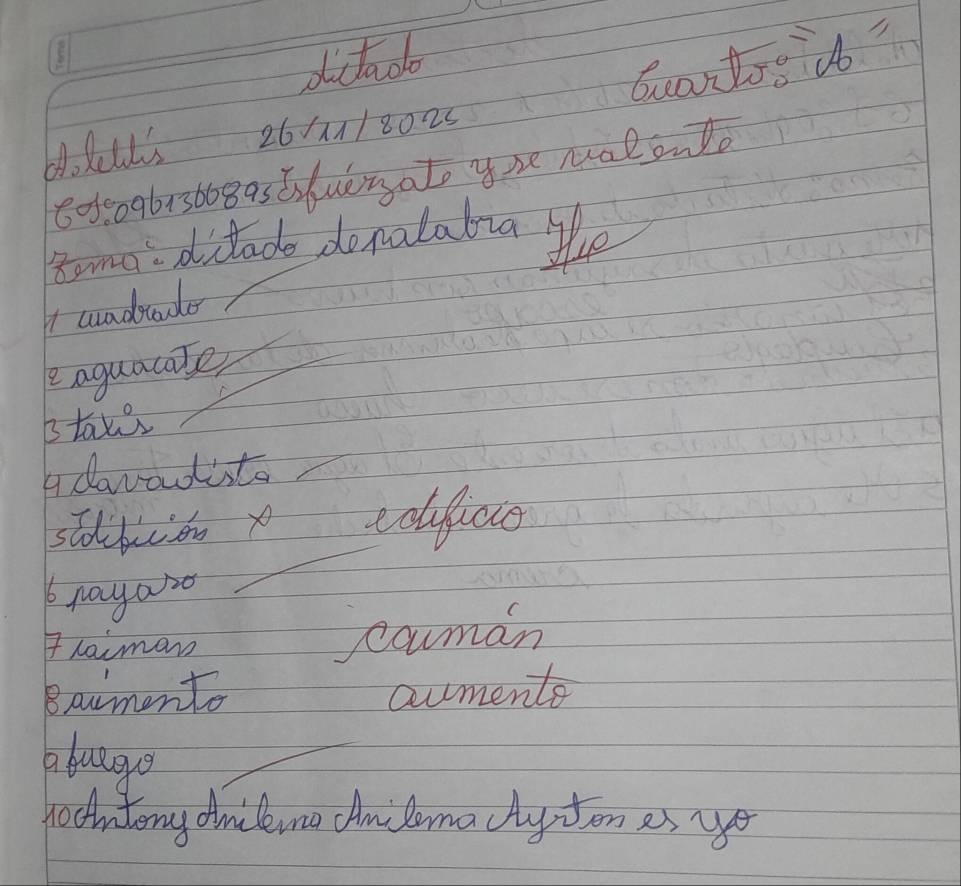 dictado
Cuarto: "A"
26/11/2025
Cel: 0961366893 Esfuérzate y se valiente
Tema: dictado de palabra
1 cuadrado
2 aguacate
3 taxis
4 clavadista
5 Edifición x edificio
6 payaso
7 caiman caimán
8 aúmento aumento
9 fuego
10 Antony Anilema Anilema Ayrton es yo